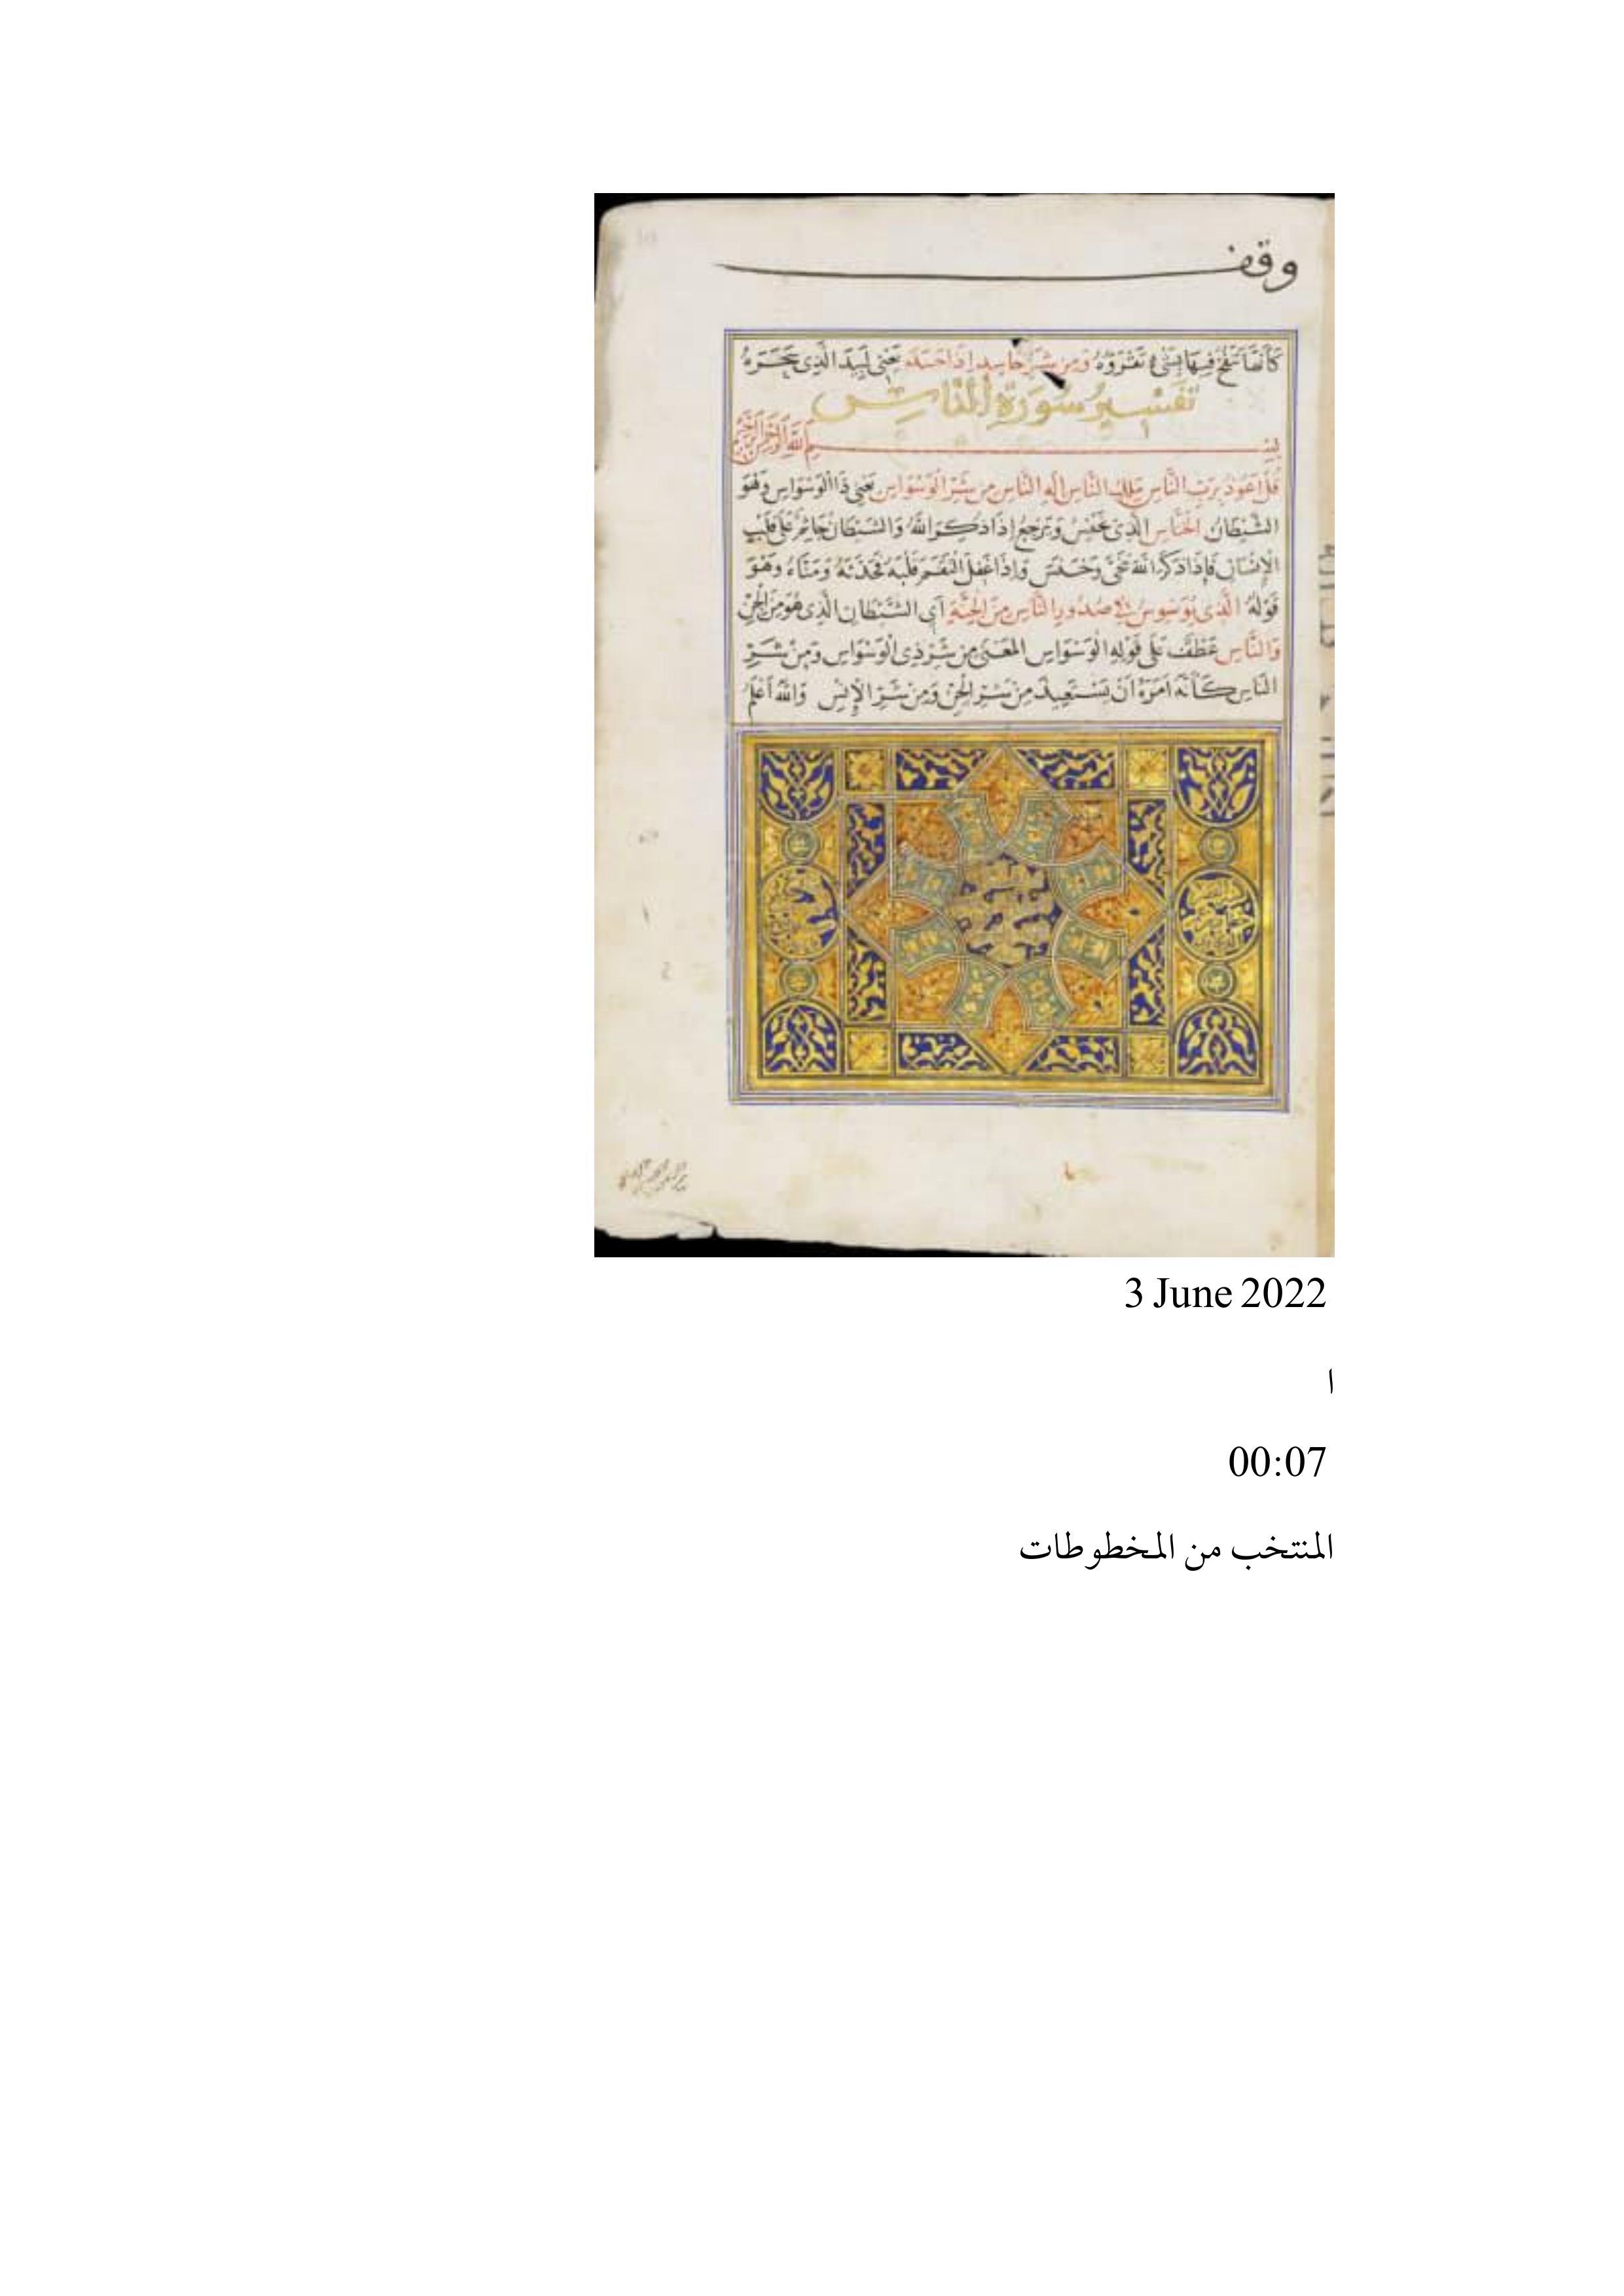 وقف
كأنها تنفخ فيها بشيء تقرؤه ومن شر حاسد إذا حسد يعني لبيدا الذي سحره
تفسير سورة الناس
بسم الله الرحمن الرحيم
قُلْ اَعُوذُ بِرَبِّ النَّاسِ مَلِكِ النَّاسِ اِلَهِ النَّاسِ مِنْ شَرِّ الْوَسْوَاسِ يَعْنِي ذَا الْوَسْوَاسِ وَهُوَ
الشَّيْطَانُ الْخَنَّاسِ الَّذِي يَخْنِسُ وَيَرْجِعُ إِذَا ذُكِرَ اللَّهُ وَالشَّيْطَانُ جَاثِمٌ عَلَى قَلْبِ
الْإِنْسَانِ فَإِذَا ذَكَرَ اللَّهَ تَنَحَّى وَخَنَسَ وَإِذَا غَفَلَ الْتَقَمَ قَلْبَهُ فَحَدَّثَهُ وَمَنَّاهُ وَهُوَ
قَوْلُهُ الَّذِي يُوَسْوِسُ فِي صُدُورِ النَّاسِ مِنَ الْجِنَّةِ أَيِ الشَّيْطَانِ الَّذِي هُوَ مِنَ الْجِنِّ
وَالنَّاسِ عَطْفٌ عَلَى قَوْلِهِ الْوَسْوَاسِ الْمَعْنَى مِنْ شَرِّ ذِي الْوَسْوَاسِ وَمِنْ شَرِّ
النَّاسِ كَأَنَّهُ اَمَرَهُ اَنْ يَسْتَعِيذَ مِنْ شَرِّ الْجِنِّ وَمِنْ شَرِّ الْإِنْسِ وَاللَّهُ أَعْلَمُ
3 June 2022
ا
00:07
المنتخب من المخطوطات